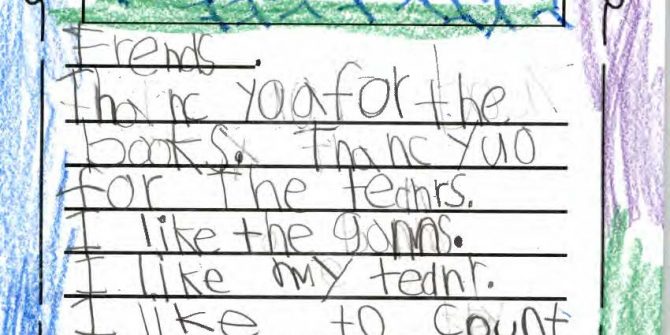 Frends.
Thanc yoa for the
books. Thanc yuo
for The teanrs.
I like the gamns.
I like my teanr.
I like to count